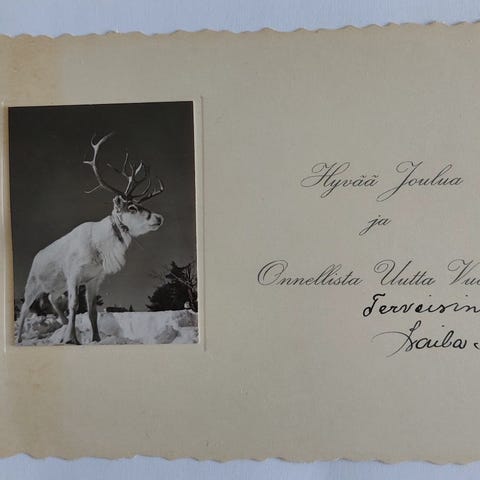 Hyvää Joulua
ja
Onnellista Uutta
Terveisin